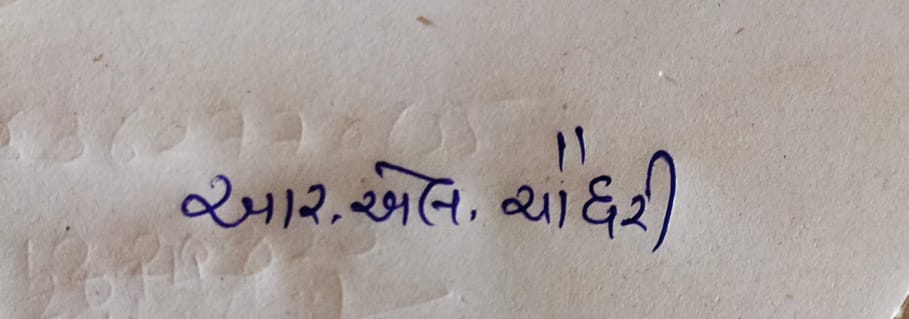 આર. એલ. ચૌધરી